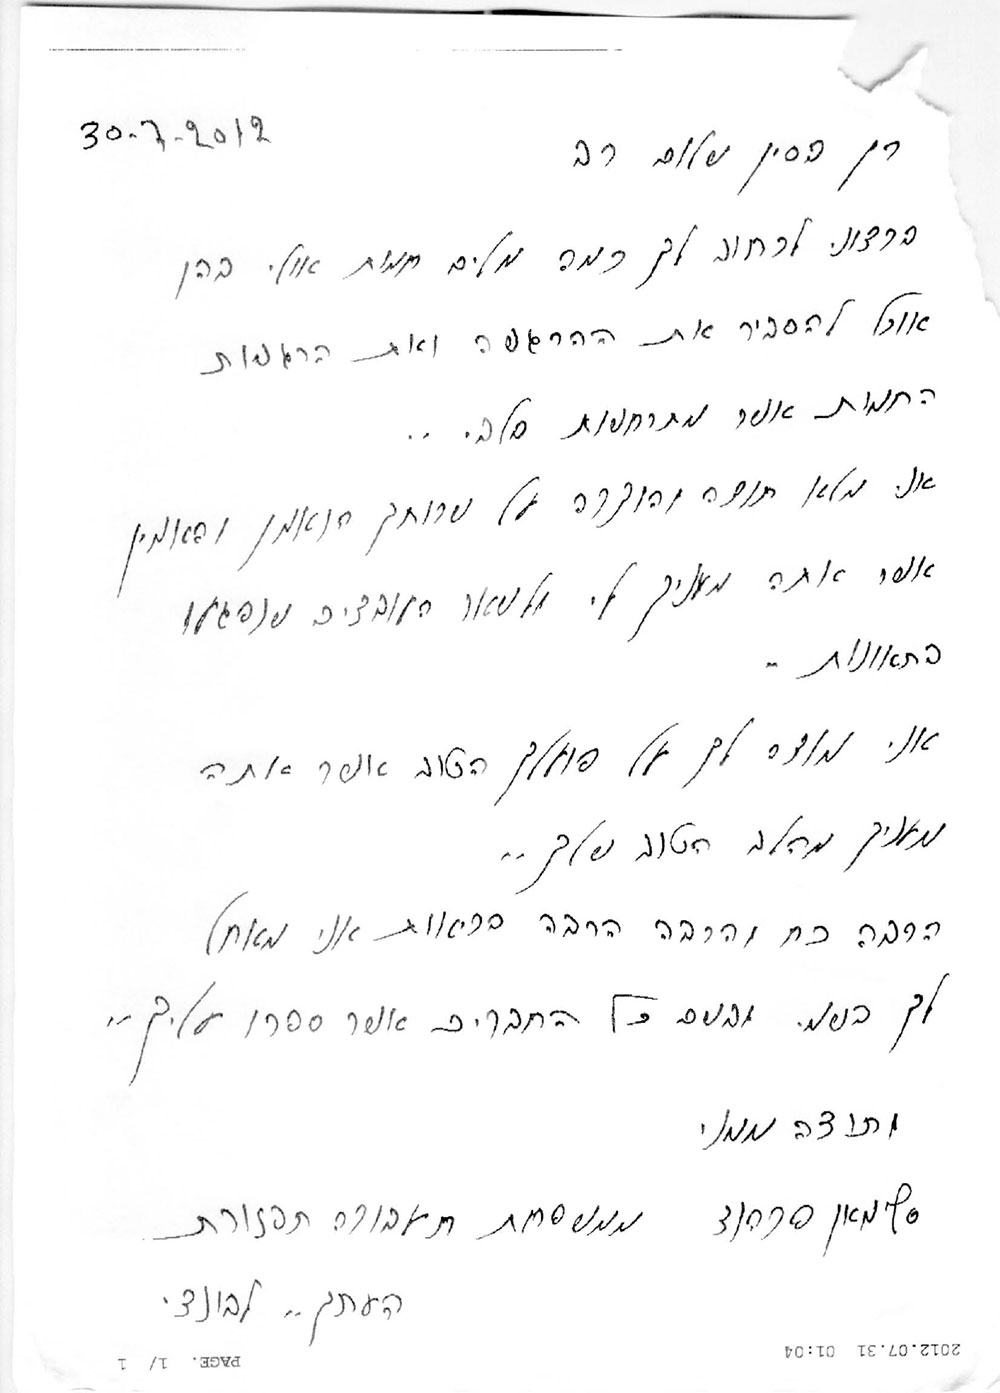 30-7-2012
רן בסין שלום רב
ברצוני לכתוב לך כמה מלים חמות אולי בהן
אוכל להסביר את ההרגשה ואת הרגשות
החמות אשר מתרחשות בלבי ..
אני מלא תודה והוקרה על שרותך הנאמן והאמין
אשר אתה מעניק לי ולשאר העובדים שנפגעו
בתאונות ..
אני מודה לך על פועלך הטוב אשר אתה
מעניק מהלב הטוב שלך ..
הרבה כח והרבה הרבה בריאות אני מאחל
לך בשמי ובשם כל החברים אשר ספרו עליך ..
ותודה ממני
סלימאן פרהוד ממשפחת תעבורה תפזורת
העתק .. לבונדי
2012.07.31 01:04
PAGE. 1/ 1